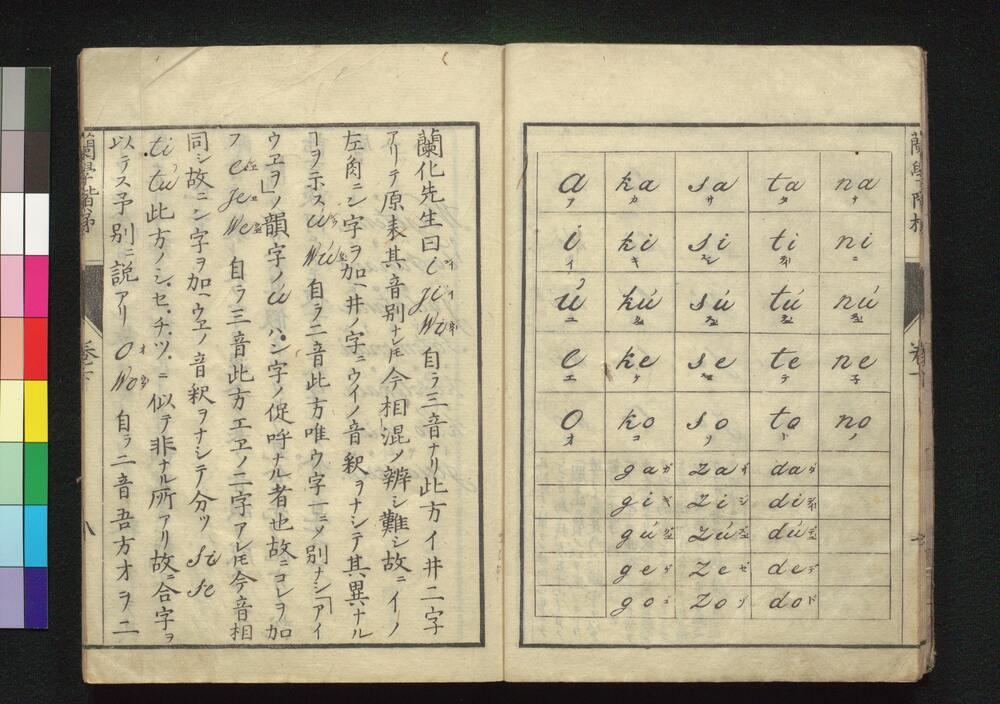 a ア ka カ sa サ ta タ na ナ
i イ ki キ si ti ni ニ
ú kú sú tú nú
e エ ke ケ se te テ ne 子
o オ ko コ so ソ to ト no ノ
ga ガ za ザ da ダ
gi ギ zi ジ di
gú zú dú
ge ゲ ze ゼ de デ
go ゴ zo ゾ do ド
蘭化先生曰 i イ ji イ wi 井 自ラ三音ナリ此方イ井二字
アリテ原来其音別ナレ𪜈今相混メ辨シ難シ故ニイノ
左角ニン字ヲ加ヘ井ノ字ニウイノ音釈ヲナシテ其異ナル
ヿヲ示ス ú wú 自ラ二音此方唯ウ字一ニメ別ナシ「アイ
ウヱヲ」ノ韻字ノ ú ハン字ノ促呼ナル者也故ニコレヲ加
フ e je we 自ラ三音此方エヱノ二字アレ𪜈今音相
同シ故ニン字ヲ加ヘウヱノ音釈ヲナシテ分ツ si se
ti tú 此方ノシ、セ、チ、ツ、ニ似テ非ナル所アリ故ニ合字ヲ
以テス予別ニ説アリ o オ wo 自ラ二音吾方オヲ二
蘭學階梯
八